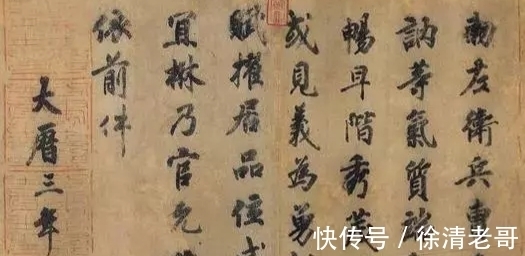 勑左衛兵曹
訥等氣質端
暢早階秀茂
或見義為勇
賦擢居品位
冝楙乃官允
依前件
大曆三年
快传号 / 徐清老哥